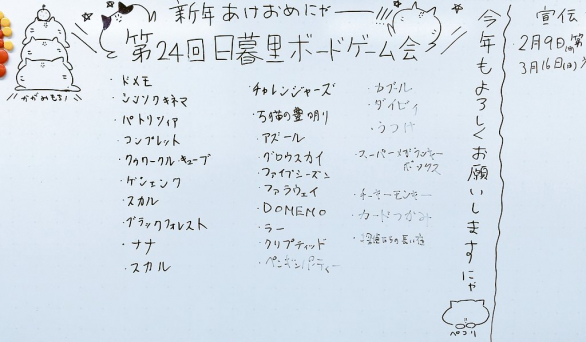 新年あけおめにゃー
第24回日暮里ボードゲーム会
かがみもち!
・ドメモ
・パトリツィア
・コンプレット
・クゥワークルキューブ
・ゲシェンク
・スカル
・ブラックフォレスト
・ナナ
・スカル
・チャレンジャーズ
・アズール
・グロウスカイ
・ファイブシーズン
・ファラウェイ
・DOMEMO
・ラー
・クリプティッド
・ペンギンパーティー
・カブル
・スーパーメガラッキー
ボックス
今年もよろしくお願いしますにゃ
ペコリ
宣伝
・2月9日
3月16日(日)